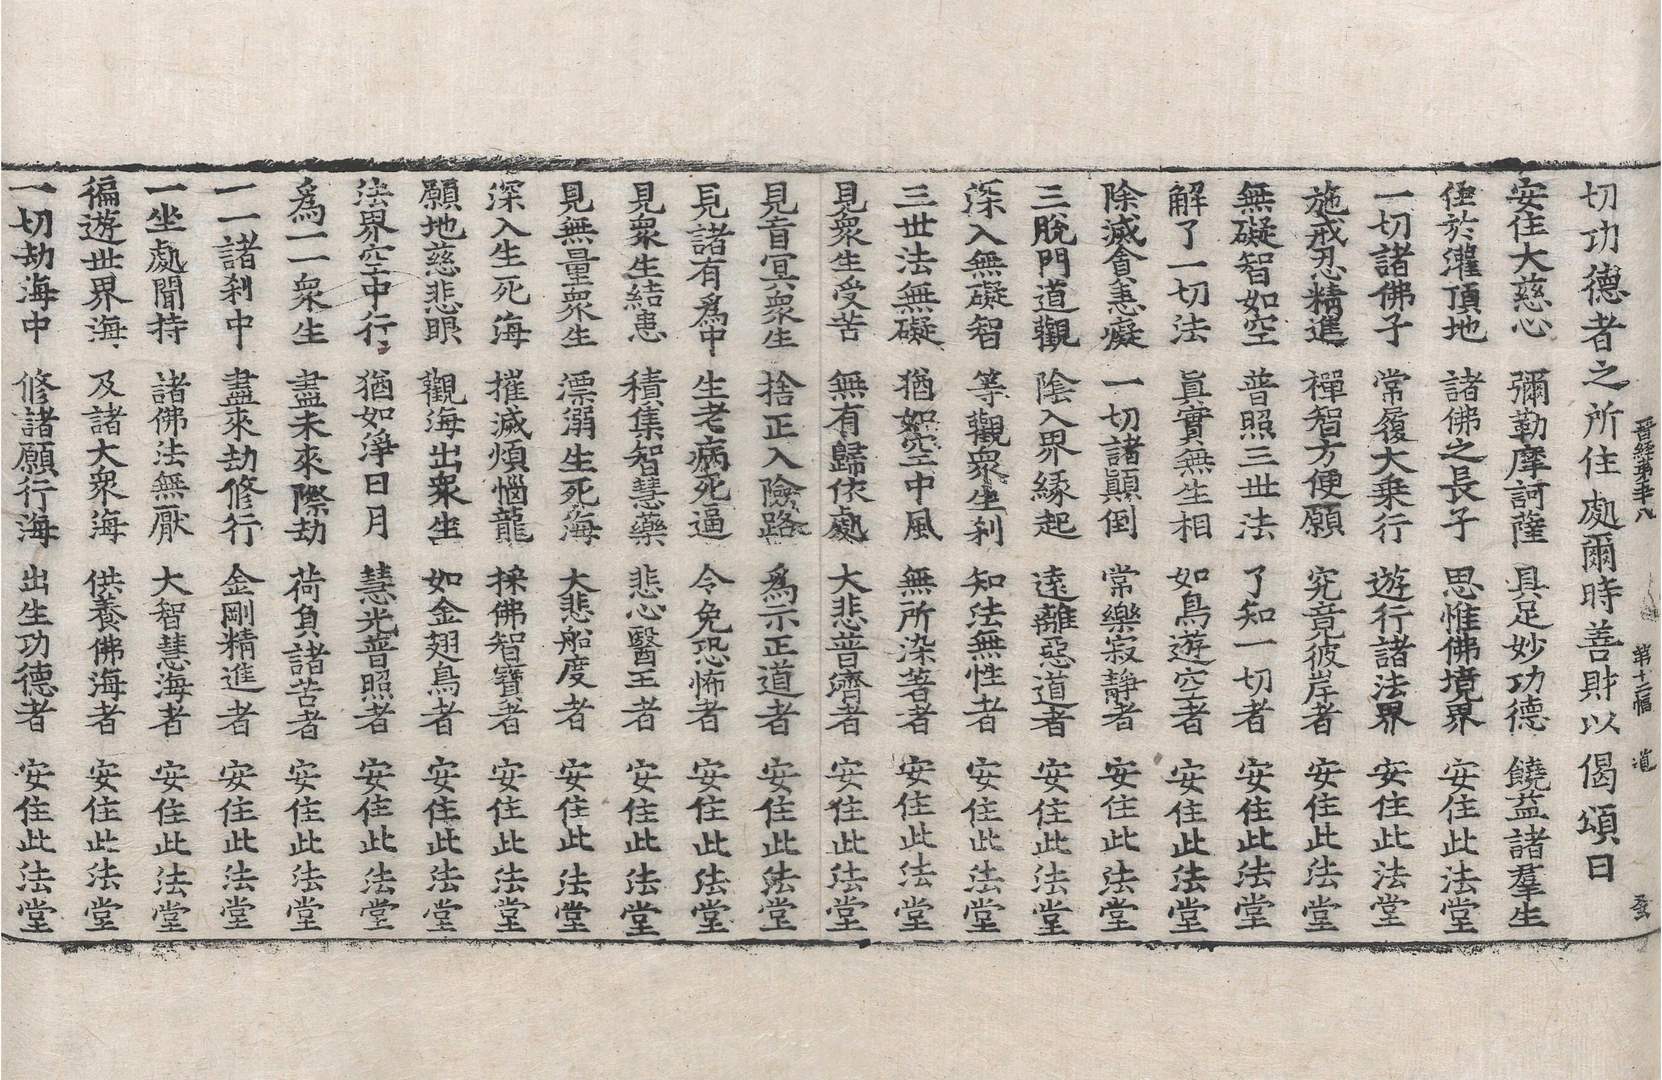 晉經第五十八 第十二幅 道
切功德者之所住處爾時善財以偈頌曰
安住大慈心 彌勒摩訶薩 具足妙功德 饒益諸羣生
住於灌頂地 諸佛之長子 思惟佛境界 安住此法堂
一切諸佛子 常履大乗行 遊行諸法界 安住此法堂
施戒忍精進 禪智方便願 究竟彼岸者 安住此法堂
無礙智如空 普照三世法 了知一切者 安住此法堂
解了一切法 眞實無生相 如鳥遊空者 安住此法堂
除滅貪恚癡 一切諸顛倒 常樂寂靜者 安住此法堂
三脫門道觀 陰入界緣起 遠離惡道者 安住此法堂
深入無礙智 等觀衆生刹 知法無性者 安住此法堂
三世法無礙 猶如空中風 無所染著者 安住此法堂
見衆生受苦 無有歸依處 大悲普濟者 安住此法堂
見盲冥衆生 捨正入險路 爲示正道者 安住此法堂
見諸有爲中 生老病死逼 令免恐怖者 安住此法堂
見衆生結患 積集智慧藥 悲心醫王者 安住此法堂
見無量衆生 漂溺生死海 大悲船度者 安住此法堂
深入生死海 摧滅煩惱龍 採佛智寶者 安住此法堂
願地慈悲眼 觀海出衆生 如金翅鳥者 安住此法堂
法界空中行 猶如淨日月 慧光普照者 安住此法堂
爲一一衆生 盡未來際劫 荷負諸苦者 安住此法堂
一一諸刹中 盡來劫修行 金剛精進者 安住此法堂
一坐處聞持 諸佛法無厭 大智慧海者 安住此法堂
徧遊世界海 及諸大衆海 供養佛海者 安住此法堂
一切劫海中 修諸願行海 出生功德者 安住此法堂